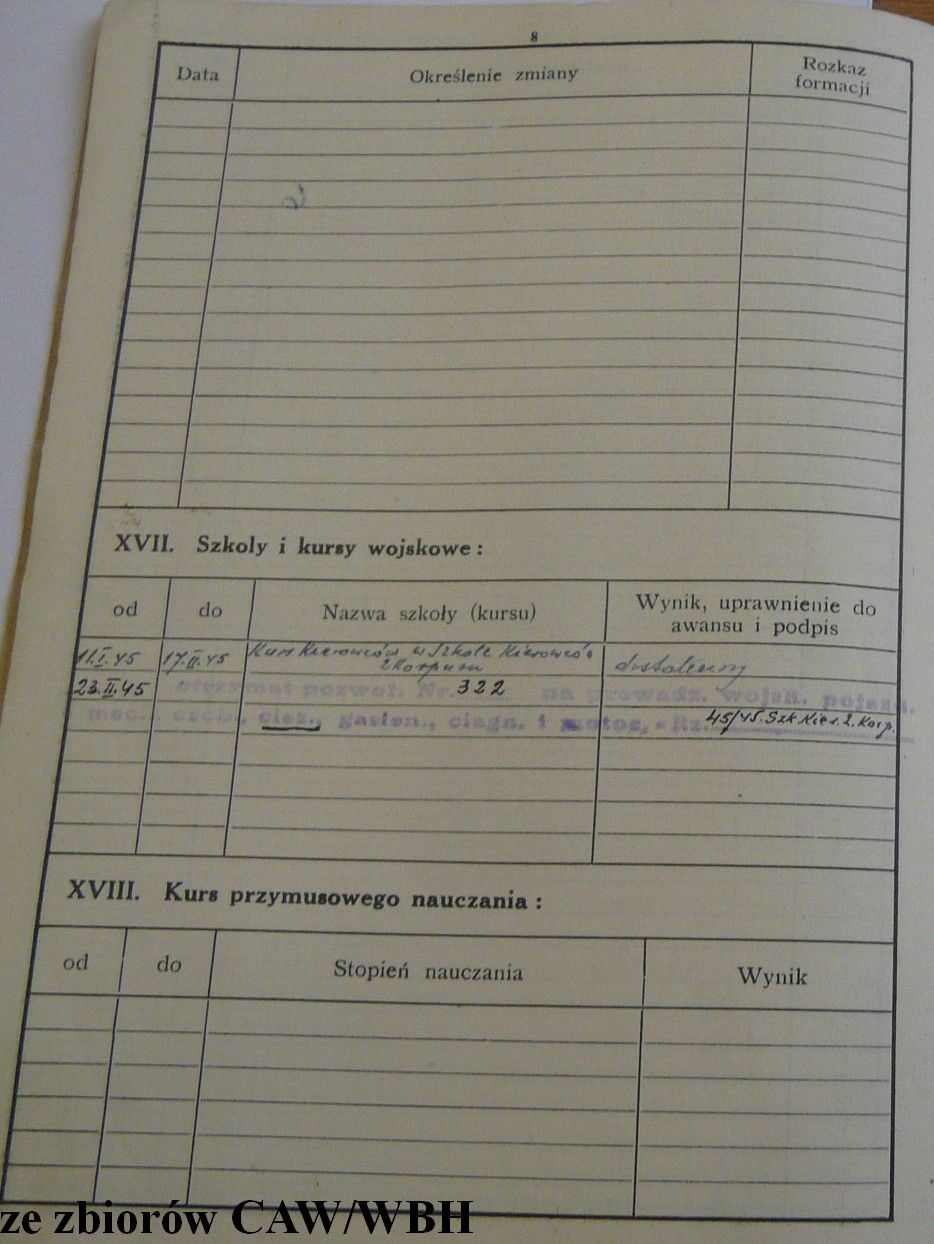 8
Data Określenie zmiany Rozkaz formacji
XVII. Szkoły i kursy wojskowe :
od do Nazwa szkoły (kursu) Wynik, uprawnienie do awansu i podpis
11.I.45 17.II.45 Kurs Kierowców w Szkole Kierowców
2 Korpusu
23.II.45 otrzymał pozwol. Nr. 322 na prowadz. wojsk. pojazd.
mech. osob., cięż., gąsien., ciągn. i motoc. - Rz. 45/45. Szk Kier. 2. Korp.
XVIII. Kurs przymusowego nauczania :
od do Stopień nauczania Wynik
ze zbiorów CAW/WBH